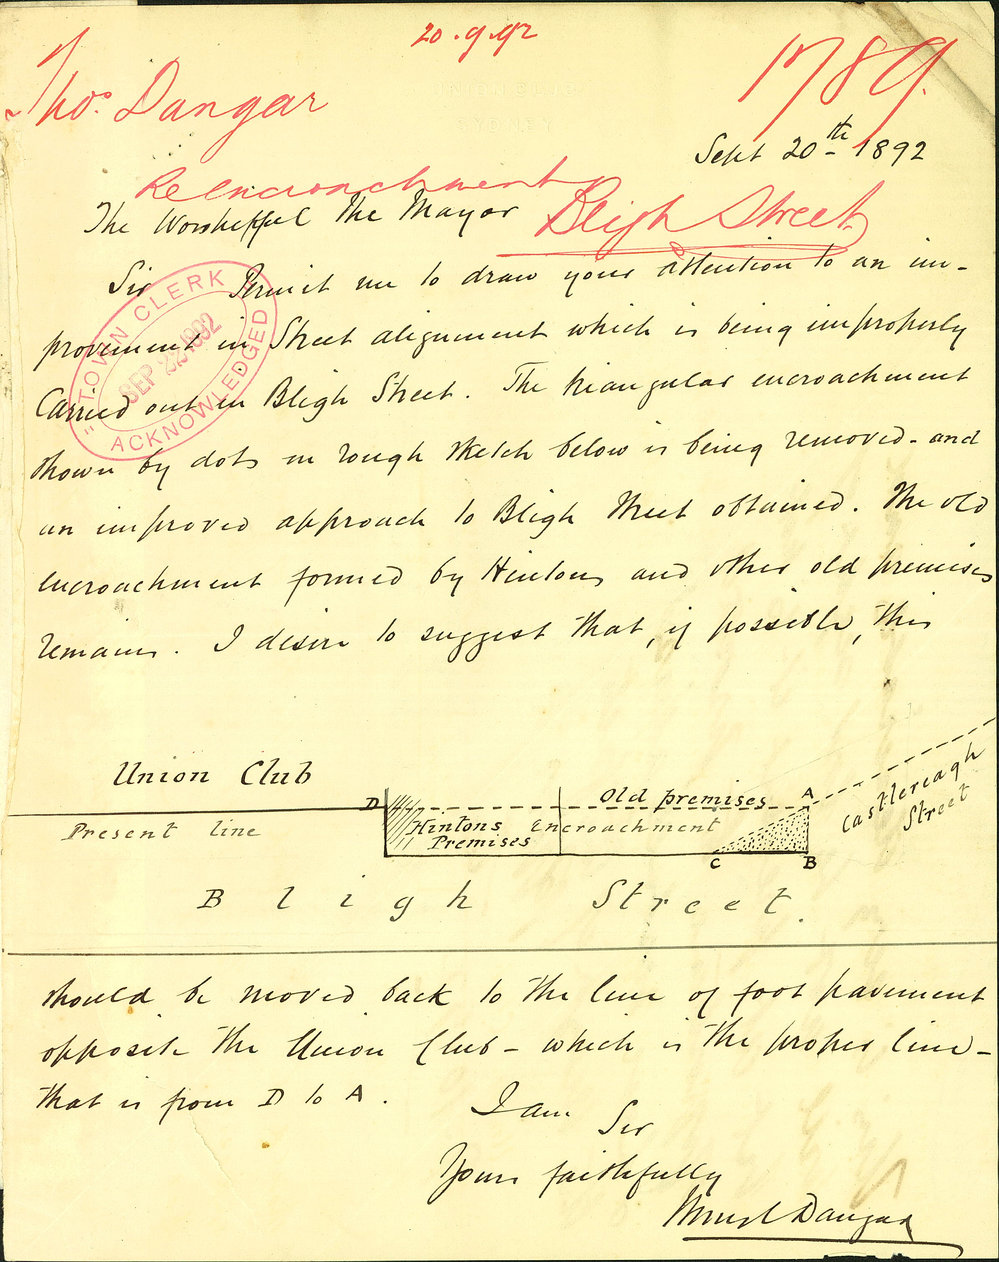 20.9.92
Thos. Dangar
1789.
UNION CLUB
SYDNEY
Sept 20th 1892
Re Encroachment
Bligh Street
The Worshipful The Mayor
TOWN CLERK
SEP 1892
ACKNOWLEDGED
Sir Permit me to draw your attention to an im-
provement in Street alignment which is being improperly
Carried out in Bligh Street. The triangular encroachment
shown by dots in rough sketch below is being removed - and
an improved approach to Bligh Street obtained. The old
encroachment formed by Hintons and other old premises
remains. I desire to suggest that, if possible, this
Union Club
D
Old premises
A
Castlereagh
Street
Present line
Hintons Encroachment
Premises
C
B
Bligh Street.
should be moved back to the line of foot pavement
opposite the Union Club - which is the proper line -
that is from D to A.
I am
Sir
Yours faithfully
Dangar